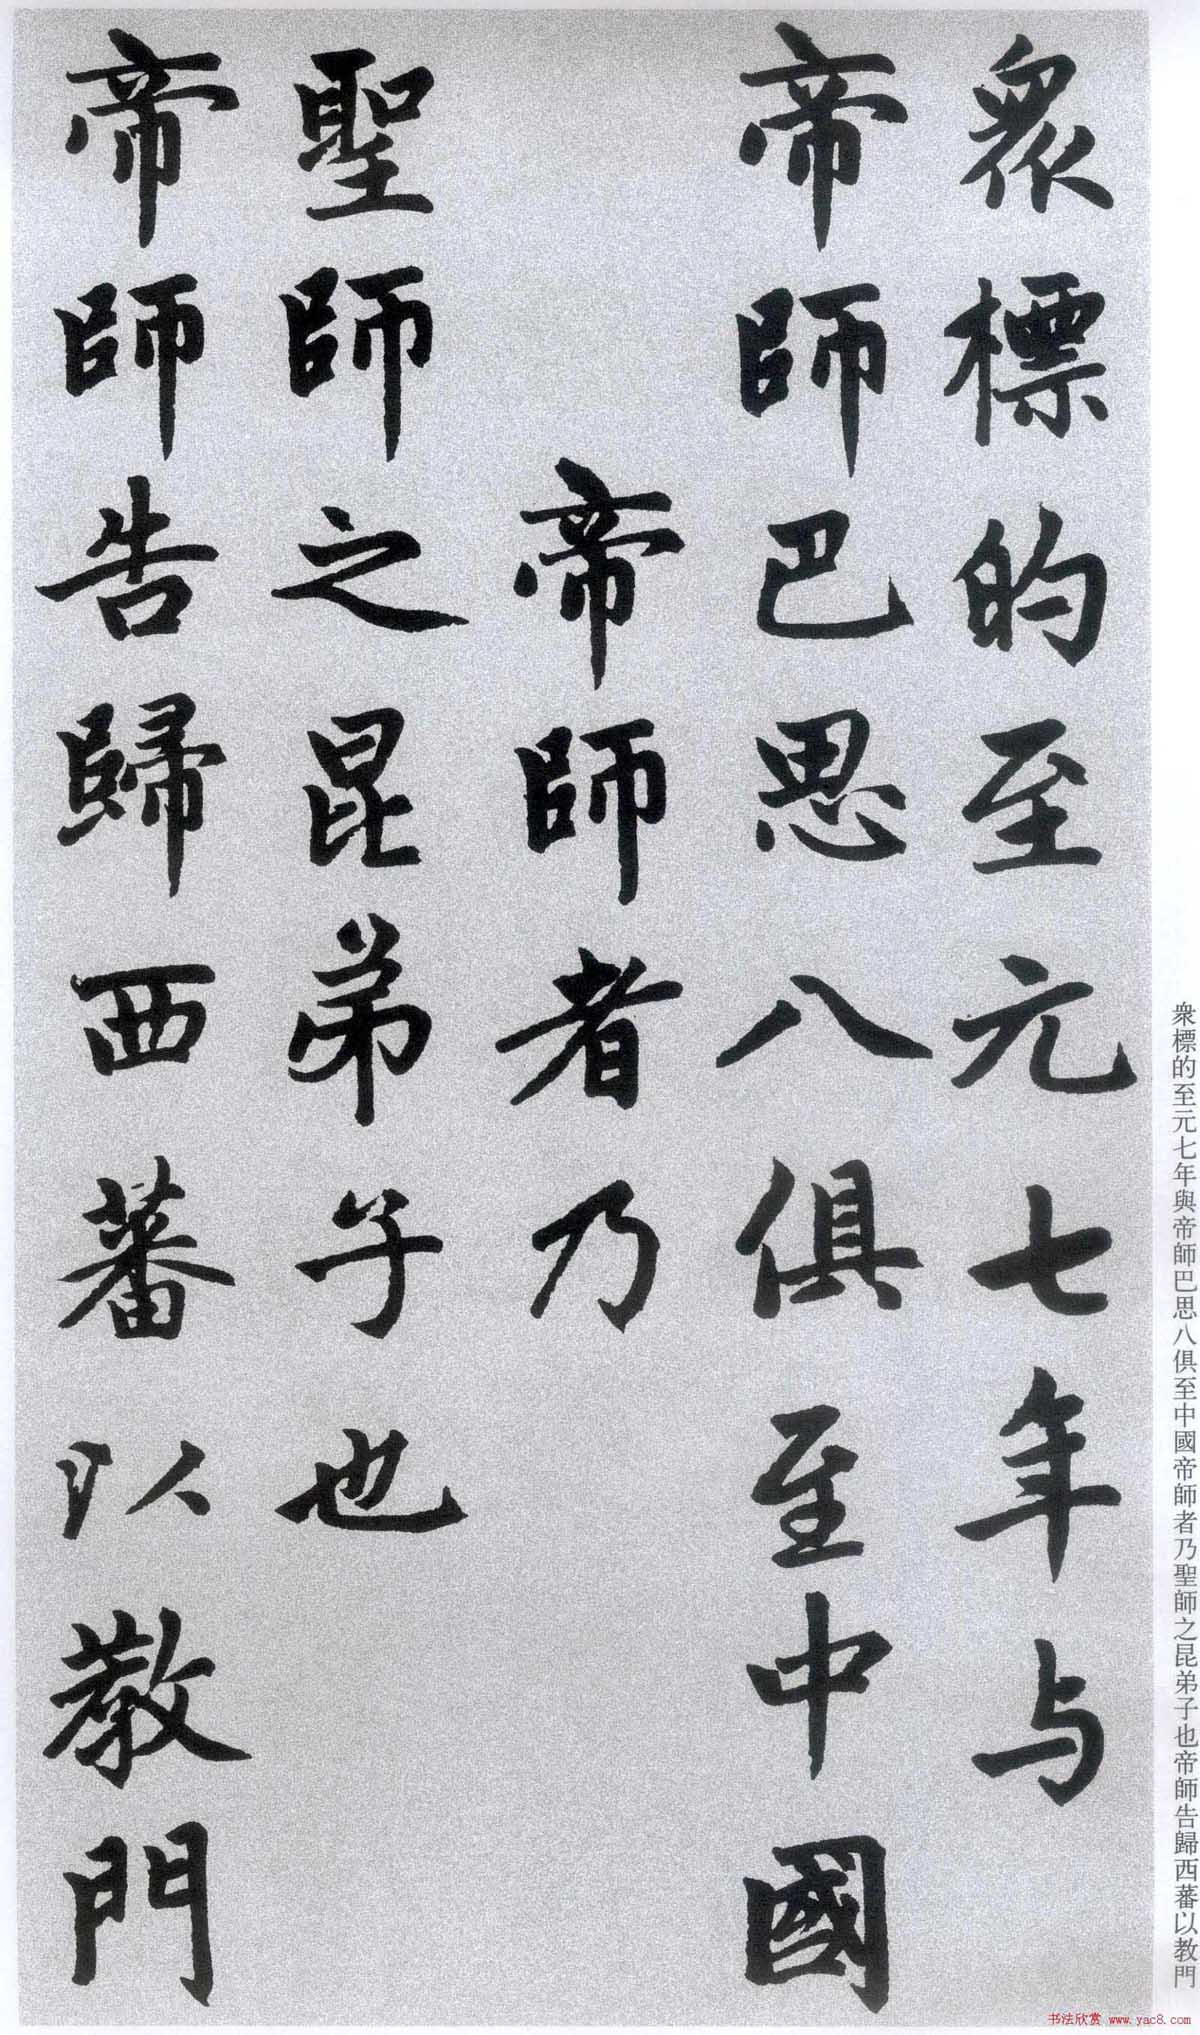 衆標的至元七年与
帝師巴思八俱至中國
帝師者乃
聖師之昆弟子也
帝師告歸西蕃以教門
衆標的至元七年與帝師巴思八俱至中國帝師者乃聖師之昆弟子也帝師告歸西蕃以教門
书法欣赏 www.yac8.com